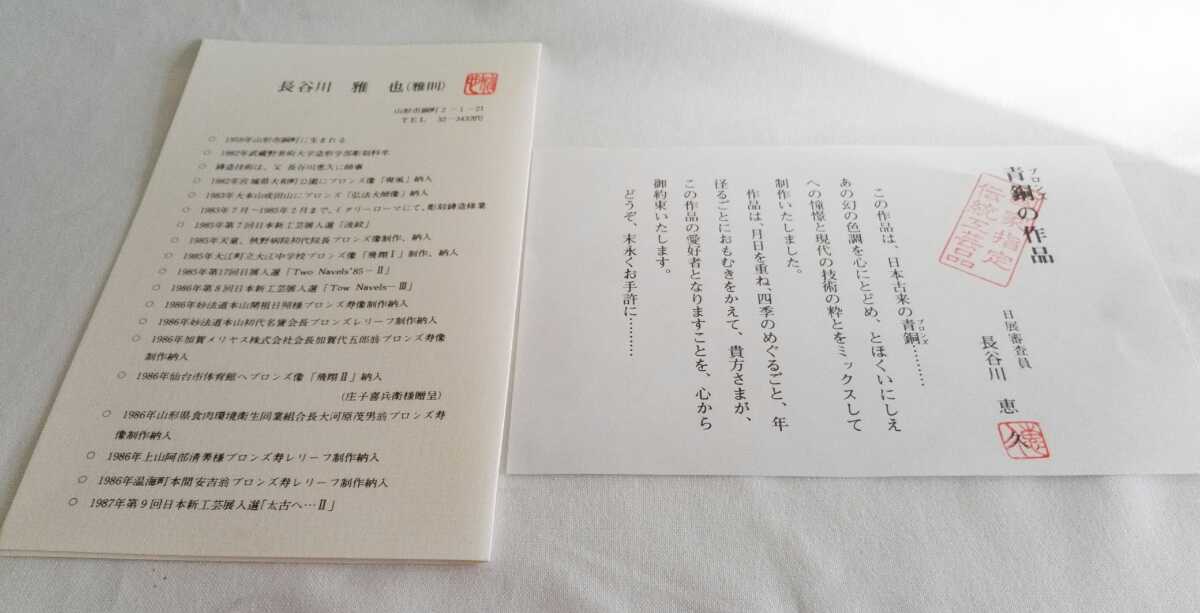 長谷川 雅 也(雅則)
山形市銅町2-1-21
TEL 32-3433代
○ 1959年山形市銅町に生まれる
○ 1982年武蔵野美術大学造形学部彫刻科卒
○ 鋳造技術は、父 長谷川恵久に師事
○ 1982年宮城県大和町公園にブロンズ像「御風」納入
○ 1983年大本山成田山にブロンズ「弘法大師像」納入
○ 1983年7月〜1985年2月まで、イタリーローマにて、彫刻鋳造修業
○ 1985年第7回日本新工芸展入選「波紋」
○ 1985年天童、秋野病院初代院長ブロンズ像制作、納入
○ 1985年大江町立大江中学校ブロンズ像「飛翔Ⅰ」制作、納入
○ 1985年第17回日展入選「Two Navels'85-Ⅱ」
○ 1986年第8回日本新工芸展入選「Tow Navels-Ⅲ」
○ 1986年妙法道本山開祖日照様ブロンズ寿像制作納入
○ 1986年妙法道本山初代名貴会長ブロンズレリーフ制作納入
○ 1986年加賀メリヤス株式会社会長加賀代五郎翁ブロンズ寿像
制作納入
○ 1986年仙台市体育館へブロンズ像「飛翔Ⅱ」納入
(庄子喜兵衛様贈呈)
○ 1986年山形県食肉環境衛生同業組合長大河原茂男翁ブロンズ寿
像制作納入
○ 1986年上山阿部清秀様ブロンズ寿レリーフ制作納入
○ 1986年温海町本間安吉翁ブロンズ寿レリーフ制作納入
○ 1987年第9回日本新工芸展入選「太古へ…Ⅱ」
ブロンズ
青銅の作品
家指定
伝統工芸品
日展審査員
長谷川 恵 久
ブロンズ
この作品は、日本古来の青銅………
あの幻の色調を心にとどめ、とほくいにしえ
への憧憬と現代の技術の粋とをミックスして
制作いたしました。
作品は、月日を重ね、四季のめぐるごと、年
径るごとにおもむきをかえて、貴方さまが、
この作品の愛好者となりますことを、心から
御約束いたします。
どうぞ、末永くお手許に………